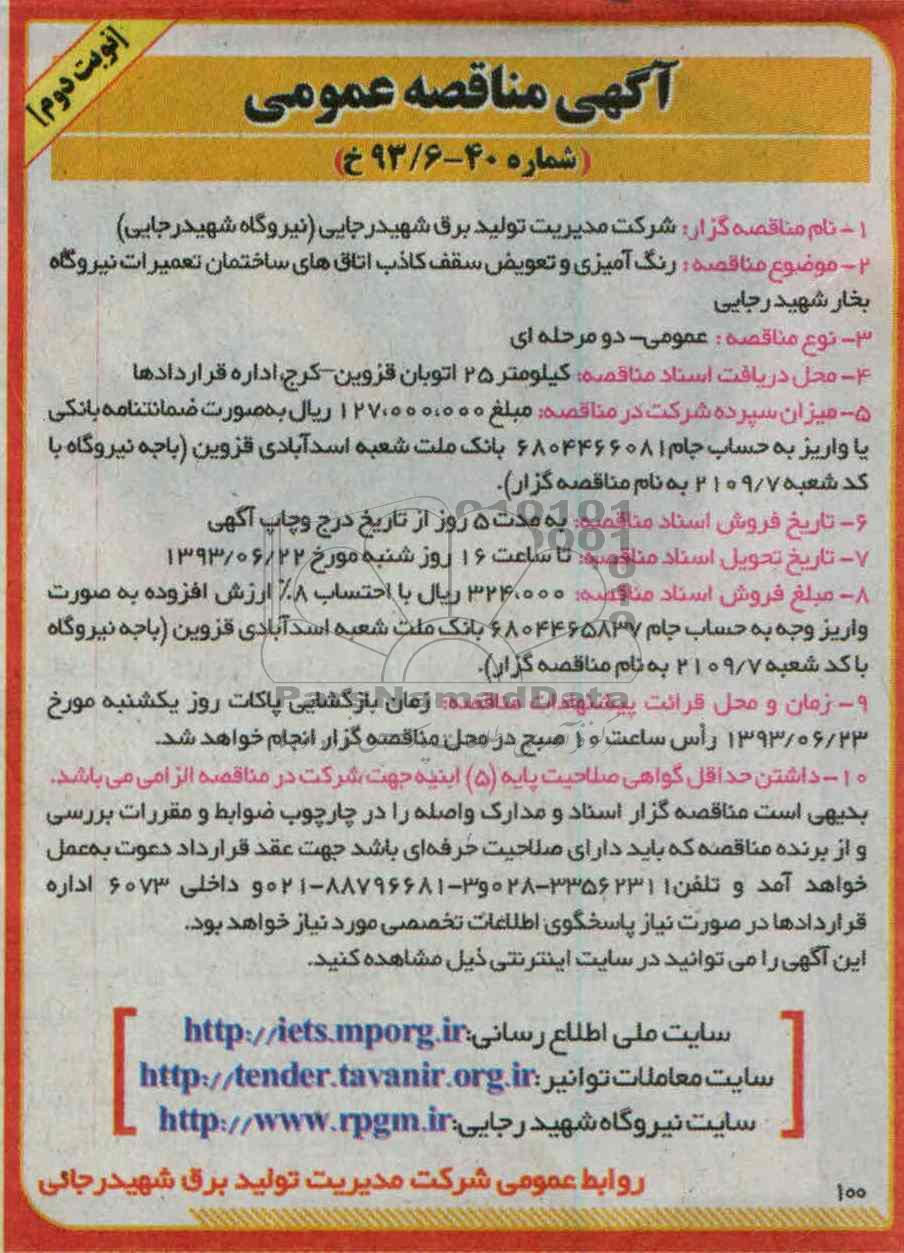 نوبت دوم
آگهی مناقصه عمومی
(شماره ۴۰-۹۳/۶ خ)
۱- نام مناقصه گزار: شرکت مدیریت تولید برق شهیدرجایی (نیروگاه شهیدرجایی)
۲- موضوع مناقصه: رنگ آمیزی و تعویض سقف کاذب اتاق های ساختمان تعمیرات نیروگاه
بخار شهید رجایی
۳- نوع مناقصه: عمومی- دو مرحله ای
۴- محل دریافت اسناد مناقصه: کیلومتر ۲۵ اتوبان قزوین-کرج، اداره قراردادها
۵- میزان سپرده شرکت در مناقصه: مبلغ ۱۲۷،۰۰۰،۰۰۰ ریال به‌صورت ضمانتنامه بانکی
یا واریز به حساب جام ۶۸۰۴۴۶۶۰۸۱ بانک ملت شعبه اسدآبادی قزوین (باجه نیروگاه با
کد شعبه ۲۱۰۹/۷ به نام مناقصه گزار).
۶- تاریخ فروش اسناد مناقصه: به مدت ۵ روز از تاریخ درج وچاپ آگهی
۷- تاریخ تحویل اسناد مناقصه: تا ساعت ۱۶ روز شنبه مورخ ۱۳۹۳/۰۶/۲۲
۸- مبلغ فروش اسناد مناقصه: ۳۲۴،۰۰۰ ریال با احتساب ۸٪ ارزش افزوده به صورت
واریز وجه به حساب جام ۶۸۰۴۴۶۵۸۳۷ بانک ملت شعبه اسدآبادی قزوین (باجه نیروگاه
با کد شعبه ۲۱۰۹/۷ به نام مناقصه گزار).
ParsNamadData
۹- زمان و محل قرائت پیشنهادات مناقصه: زمان بازگشایی پاکات روز یکشنبه مورخ
۱۳۹۳/۰۶/۲۳ رأس ساعت ۱۰ صبح در محل مناقصه گزار انجام خواهد شد.
۱۰- داشتن حداقل گواهی صلاحیت پایه (۵) ابنیه جهت شرکت در مناقصه الزامی می باشد.
بدیهی است مناقصه گزار اسناد و مدارک واصله را در چارچوب ضوابط و مقررات بررسی
و از برنده مناقصه که باید دارای صلاحیت حرفه‌ای باشد جهت عقد قرارداد دعوت به‌عمل
خواهد آمد و تلفن ۳۳۵۶۲۳۱۱-۰۲۸ و ۳-۸۸۷۹۶۶۸۱-۰۲۱ و داخلی ۶۰۷۳ اداره
قراردادها در صورت نیاز پاسخگوی اطلاعات تخصصی مورد نیاز خواهد بود.
این آگهی را می توانید در سایت اینترنتی ذیل مشاهده کنید.
سایت ملی اطلاع رسانی: http://iets.mporg.ir
سایت معاملات توانیر: http://tender.tavanir.org.ir
سایت نیروگاه شهید رجایی: http://www.rpgm.ir
روابط عمومی شرکت مدیریت تولید برق شهیدرجائی
۱۰۰